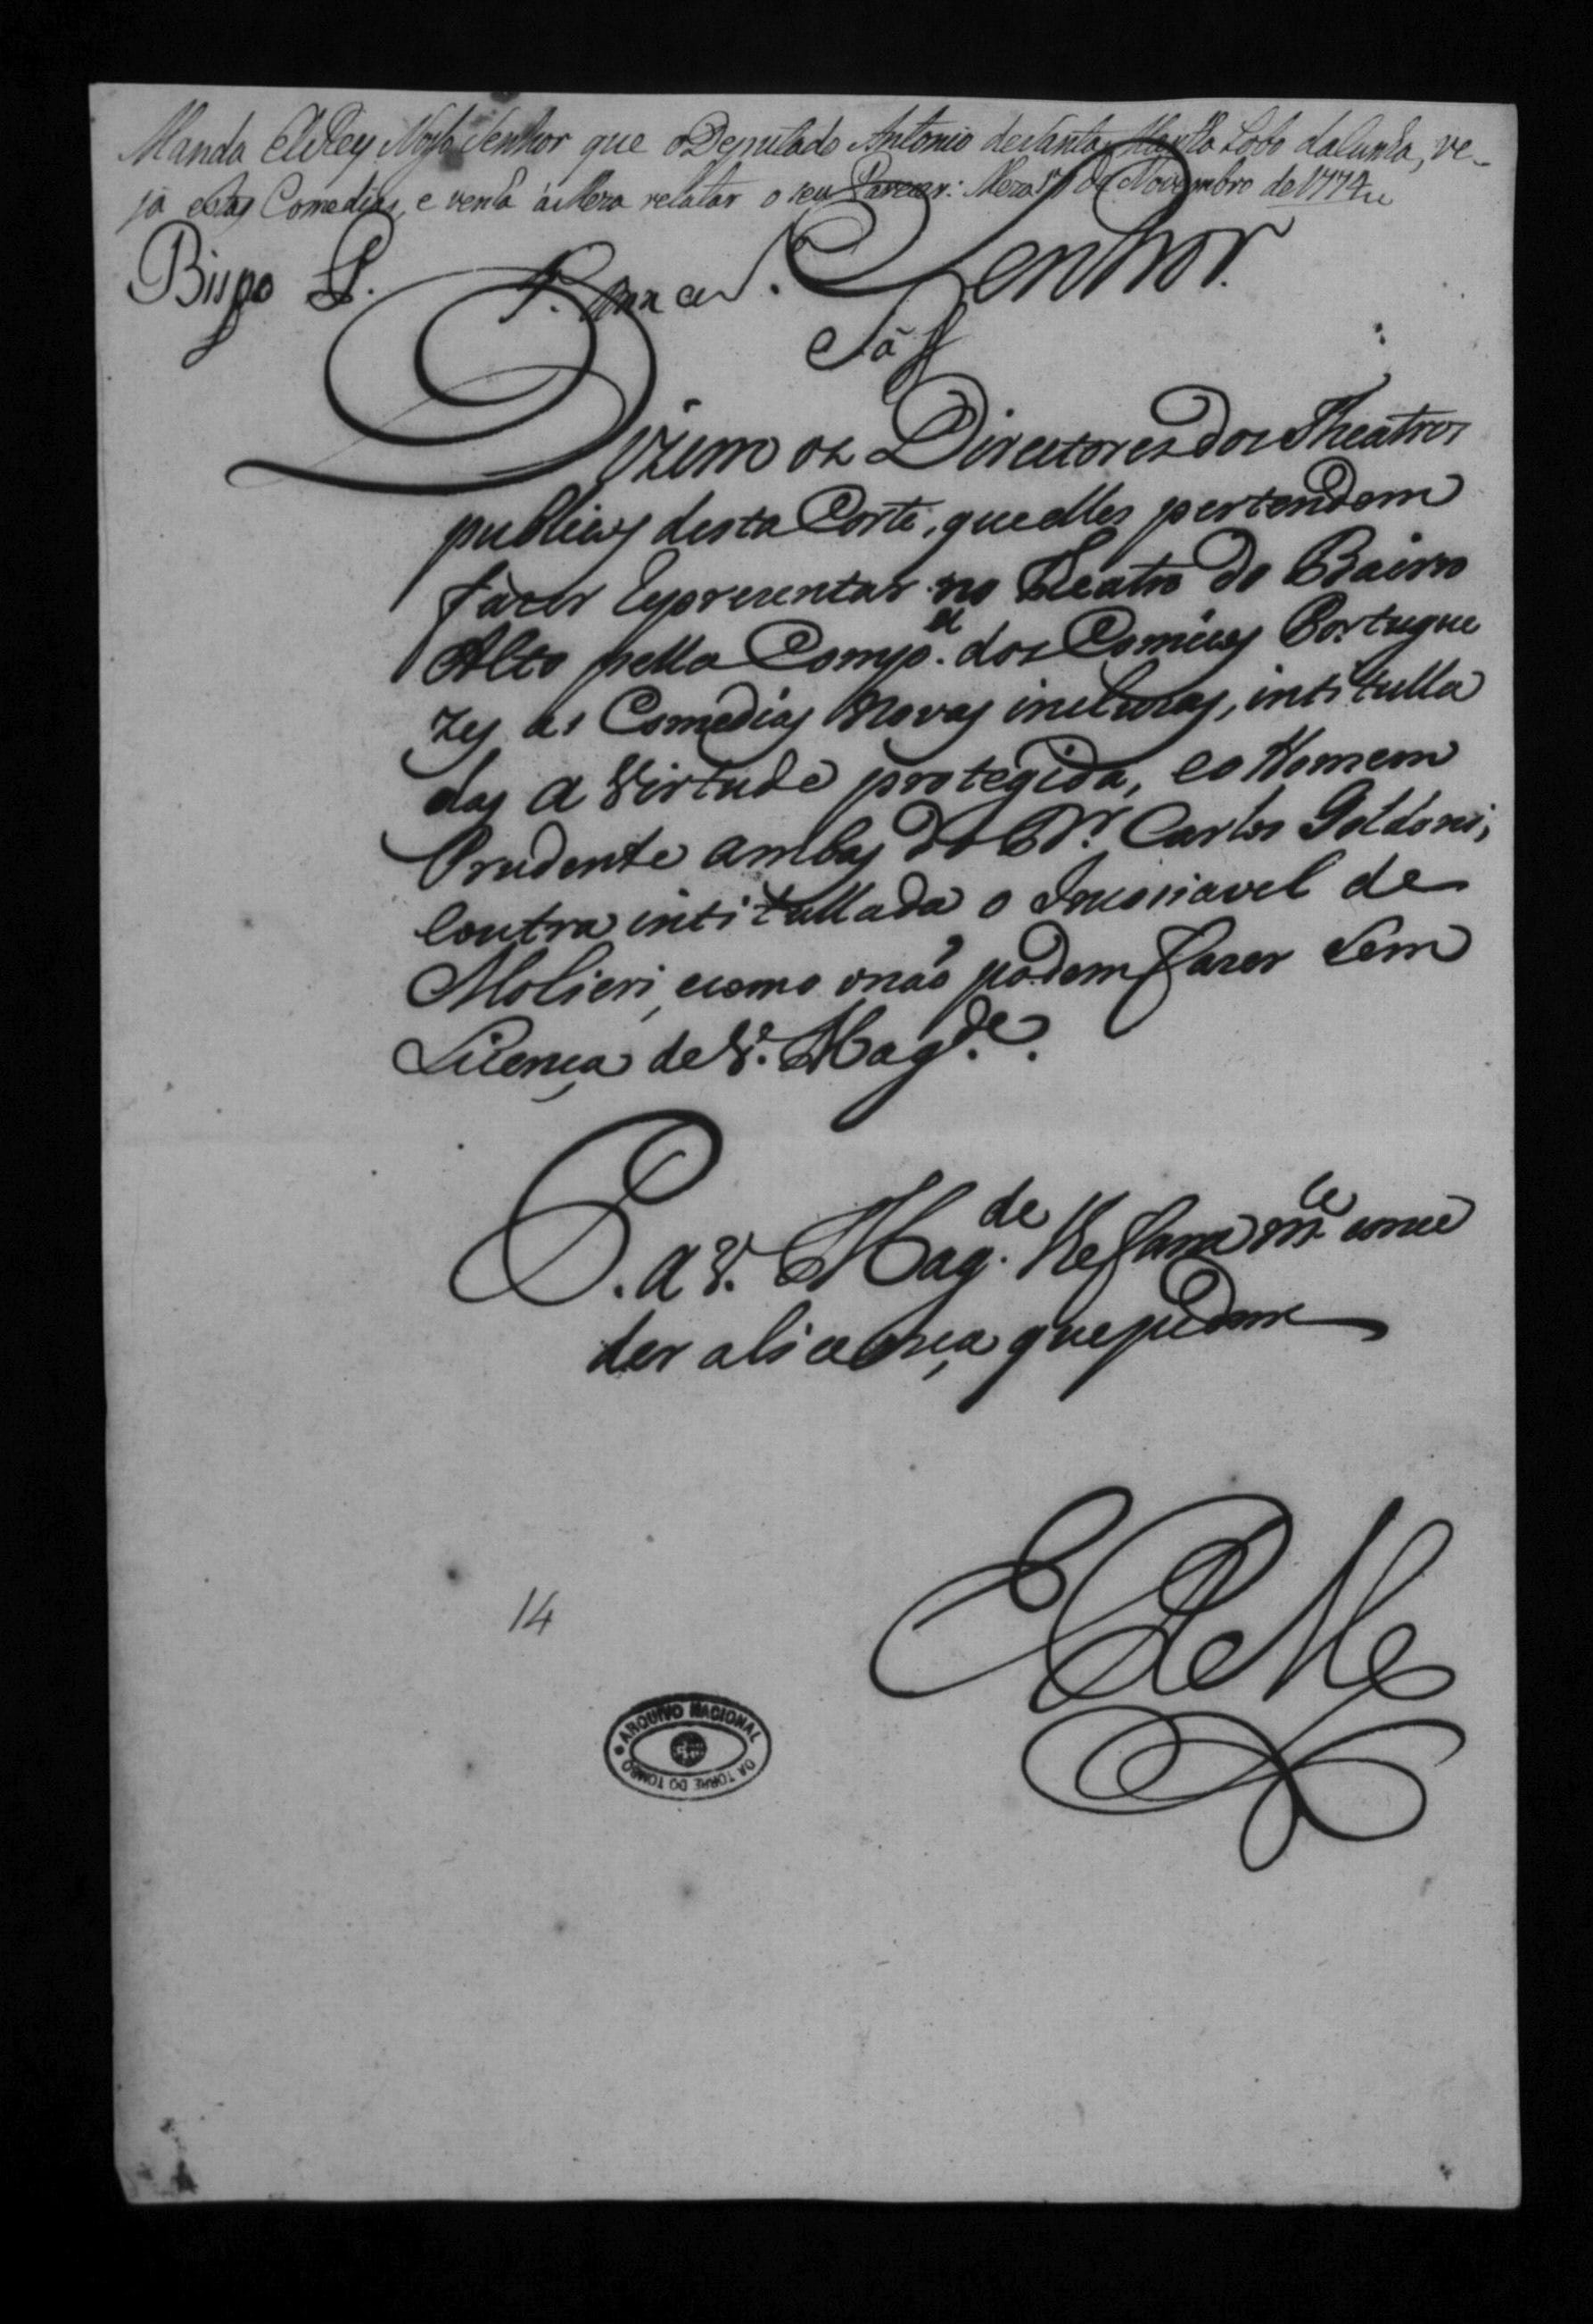 Manda ElRey Nosso Senhor que o Deputado Antonio de Santa Martha Lobo da Cunha, ve-
ja estas Comedias, e venha á Meza relatar o seu Parecer: Meza de Novembro de 1774
Senhor.
Bispo P. P.
Sá
Dizem os Directores dos Theatros
publicos desta Corte, que elles pertendem
fazer Representar no Theatro do Bairro
Alto pella Comp.a dos Comicos Portugue
zes as Comedias Novas incluzas, intitulla
das a Virtude protegida, e o Homem
Prudente ambas do D.r Carlos Goldoni,
e outra intitullada o de
Molieri, e como o não podem fazer sem
Licença de V. Mag.de.
P. a V. Mag.de lhe faça m.ce conce
der a licença que pedem
E R M.ce
14
ARQUIVO NACIONAL
DA TORRE DO TOMBO